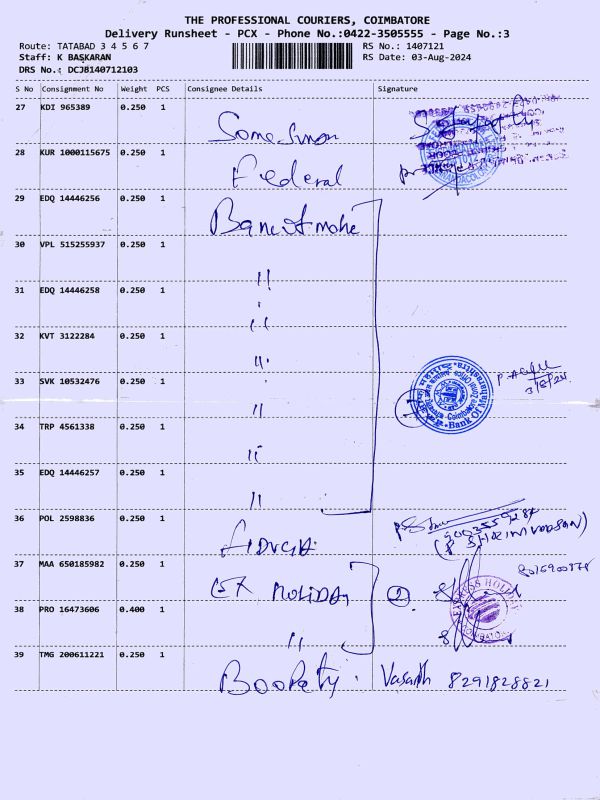 THE PROFESSIONAL COURIERS, COIMBATORE
Delivery Runsheet - PCX - Phone No.:0422-3505555 - Page No.:3
Route: TATABAD 3 4 5 6 7
RS No.: 1407121
Staff: K BASKARAN
RS Date: 03-Aug-2024
DRS No.: DCJB140712103
S No Consignment No Weight PCS Consignee Details Signature
27 KDI 965389 0.250 1
28 KUR 1000115675 0.250 1
Federal
29 EDQ 14446256 0.250 1
30 VPL 515255937 0.250 1
"
31 EDQ 14446258 0.250 1
"
32 KVT 3122284 0.250 1
"
33 SVK 10532476 0.250 1
3/8/24
"
Bank Of Maharashtra
34 TRP 4561338 0.250 1
"
35 EDQ 14446257 0.250 1
"
36 POL 2598836 0.250 1
37 MAA 650185982 0.250 1
EX HOLIDAY
2
38 PRO 16473606 0.400 1
"
39 TMG 200611221 0.250 1
Vasanth 8291828821